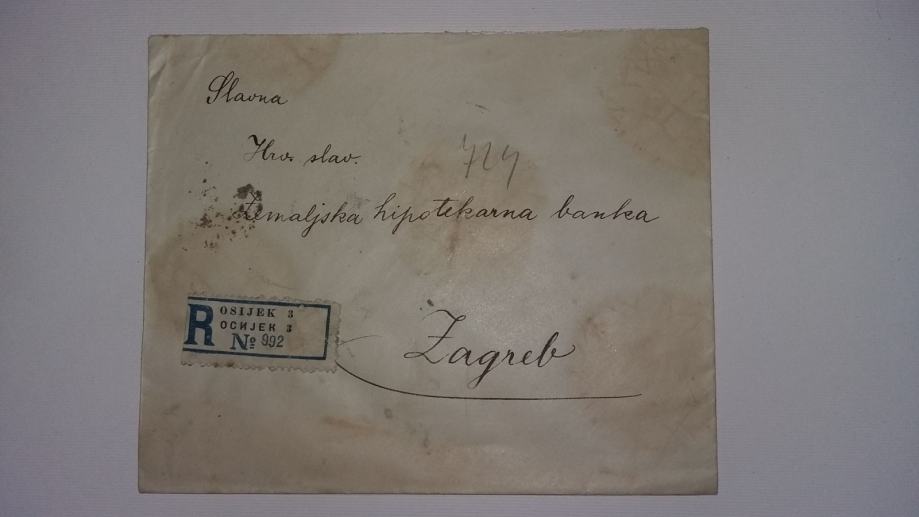 Slavna
Hrv. slav.
724
Zemaljska hipotekarna banka
R OSIJEK 3
ОСИЈЕК 3
№ 992
Zagreb